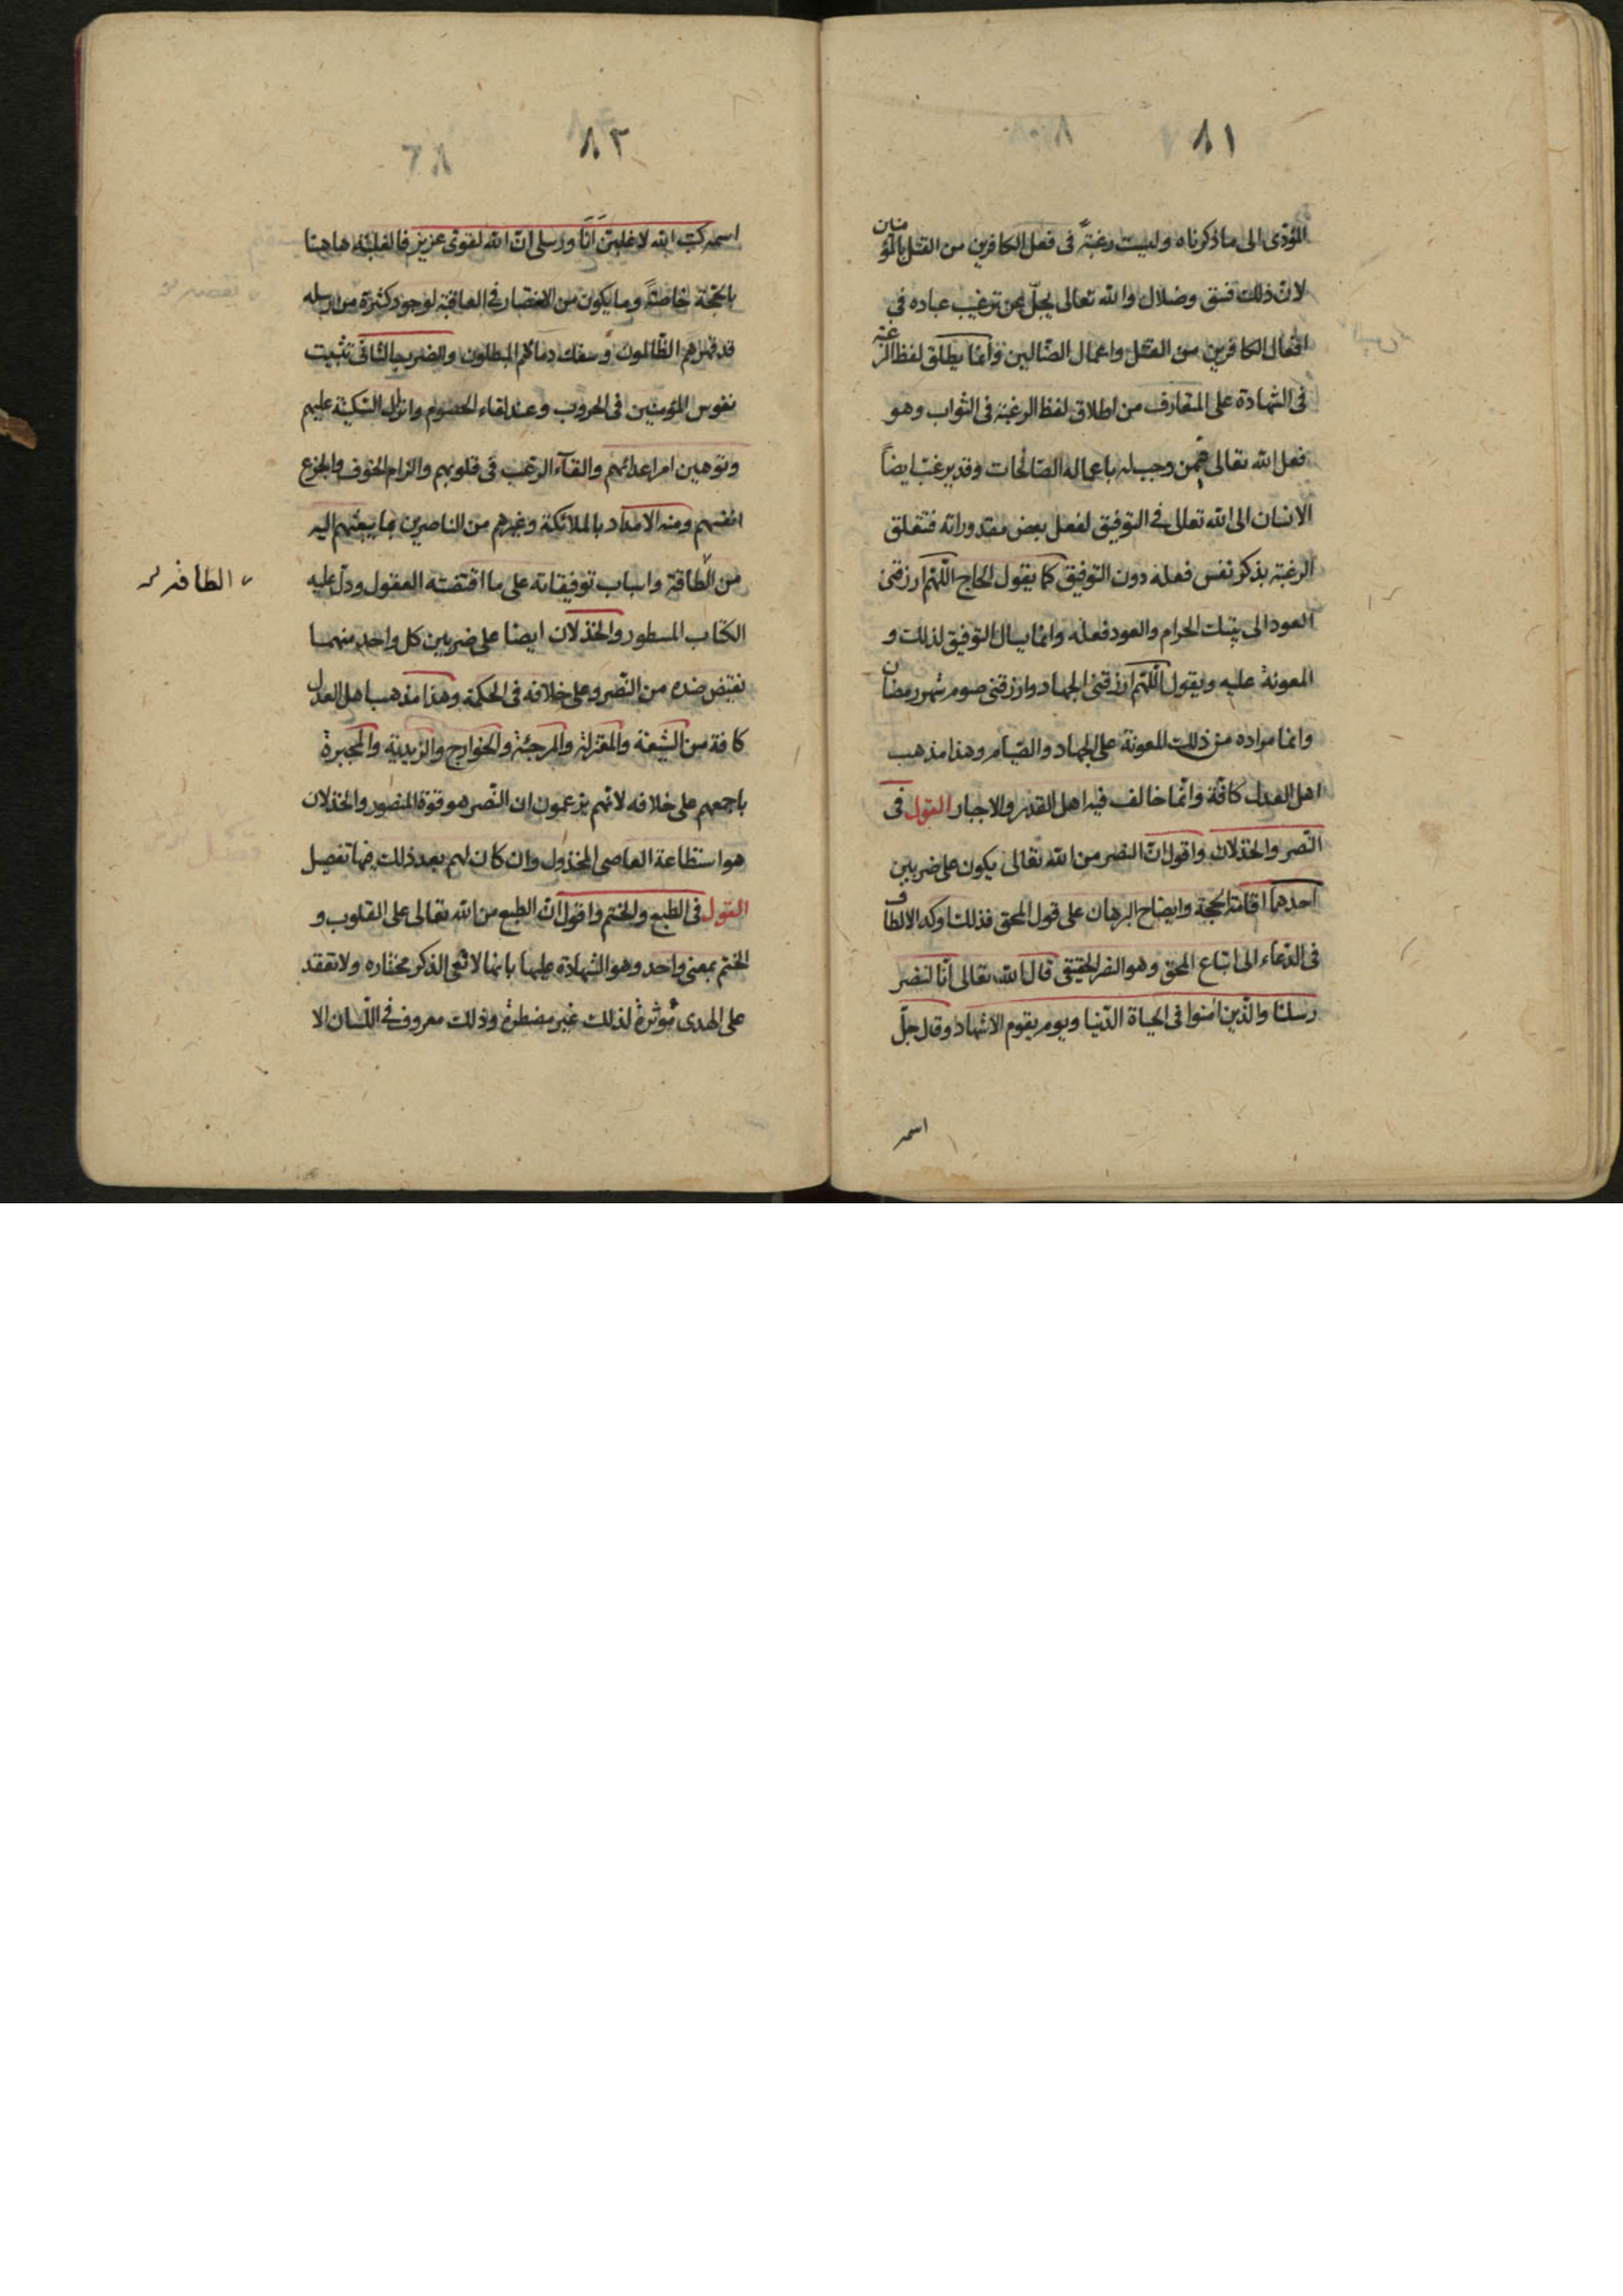 ٨١
المؤدى الى ما ذكرناه وليست رغبة فى فعل الكافرين من القتل بالمؤمنين
لان ذلك فسق وضلال والله تعالى يجل عن ترغيب عباده في
افعال الكافرين من القتل واعمال الضالين وانما يطلق لفظ الرغبة
فى الشهادة على المتعارف من اطلاق لفظ الرغبة فى الثواب وهو
فعل الله تعالى فيمن وجب له باعماله الصالحات وقد يرغب ايضاً
الانسان الى الله تعالى في التوفيق لفعل بعض مقدوراته فتتعلق
الرغبة بذكر نفس فعله دون التوفيق كما يقول الحاج اللهم ارزقنى
العود الى بيتك الحرام والعود فعله وانما يسال التوفيق لذلك و
المعونة عليه ويقول اللهم ارزقنى الجهاد وارزقنى صوم شهر رمضان
وانما مراده من ذلك المعونة على الجهاد والصيام وهذا مذهب
اهل العدل كافة وانما خالف فيه اهل القدر والاجبار القول فى
النصر والخذلان واقول ان النصر من الله تعالى يكون على ضربين
احدهما اقامة الحجة وايضاح البرهان على قول المحق فذلك اوكد الالطاف
فى الدعاء الى اتباع المحق وهو النصر الحقيقى قال الله تعالى انا لننصر
رسلنا والذين امنوا فى الحياة الدنيا ويوم يقوم الاشهاد وقال جل
اسمه
٨٢
اسمه كتب الله لاغلبن انا ورسلى ان الله لقوى عزيز فالغلبة هاهنا
بالحجة خاصة وما يكون من الانتصار في العاقبة لوجود كثرة من رسله
قد قهرهم الظالمون وسفك دمائهم المبطلون والضرب الثانى تثبيت
نفوس المؤمنين فى الحروب وعند لقاء الخصوم وانزال السكينة عليهم
وتوهين امر اعدائهم والقاء الرعب فى قلوبهم والزام الخوف والجزع
انفسهم ومنه الامداد بالملائكة وغيرهم من الناصرين بما يبعثهم اليه
من الطاقة واسباب توفيقاته على ما اقتضته العقول ودل عليه
الطافه
الكتاب المسطور والخذلان ايضا على ضربين كل واحد منهما
نقيض ضده من النصر وعلى خلافه فى الحكمة وهذا مذهب اهل العدل
كافة من الشيعة والمعتزلة والمرجئة والخوارج والزيدية والمجبرة
باجمعهم على خلافه لانهم يزعمون ان النصر هو قوة المنصور والخذلان
هو استطاعة العاصى المخذول وان كان لهم بعد ذلك فيها تفصيل
القول فى الطبع والختم واقول ان الطبع من الله تعالى على القلوب و
الختم بمعنى واحد وهو الشهادة عليها بانها لا تعى الذكر مختاره ولا تعتقد
على الهدى مؤثرة لذلك غير مضطرة وذلك معروف في اللسان الا